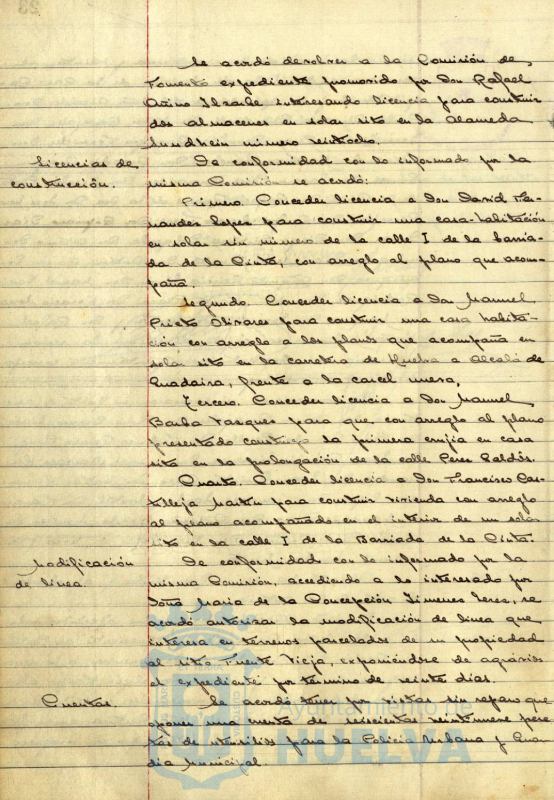 Se acordó devolver a la Comisión de
Fomento expediente promovido por Don Rafael
interesando licencia para construir
dos almacenes en solar sito en la Alameda
Sundhein número veintiocho.
Licencias de
construcción.
De conformidad con lo informado por la
misma Comisión se acordó:
Primero. Conceder licencia a Don David Fer-
nandez Lopez para construir una casa-habitación
en solar sin número de la calle I de la barria-
da de la Cinta, con arreglo al plano que acom-
paña.
Segundo. Conceder licencia a Don Manuel
Prieto Olivares para construir una casa habita-
ción con arreglo a los planos que acompaña en
solar sito en la carretera de Huelva a Alcalá de
Guadaira, frente a la carcel nueva,
Tercero. Conceder licencia a Don Manuel
Barba Vasques para que con arreglo al plano
presentado construya la primera crujia en casa
sita en la prolongación de la calle Perez Galdós.
Cuarto. Conceder licencia a Don Francisco Cas-
tilleja Martin para construir vivienda con arreglo
al plano acompañado en el interior de un solar
sito en la calle I de la Barriada de la Cinta.
Modificación
de línea.
De conformidad con lo informado por la
misma Comisión, accediendo a lo interesado por
Doña Maria de la Concepción Jimenez Jerez, se
acordó autorizar la modificación de linea que
interesa en terrenos parcelados de su propiedad
al sitio Fuente Vieja, exponiéndose de agravios
el expediente por término de veinte dias.
Cuentas.
Se acordó tener por vistas sin reparo que
oponer una cuenta de seiscientas veintinueve pese-
tas de utensilios para la Policia Urbana y Guar-
dia Municipal.
Ayuntamiento de
HUELVA